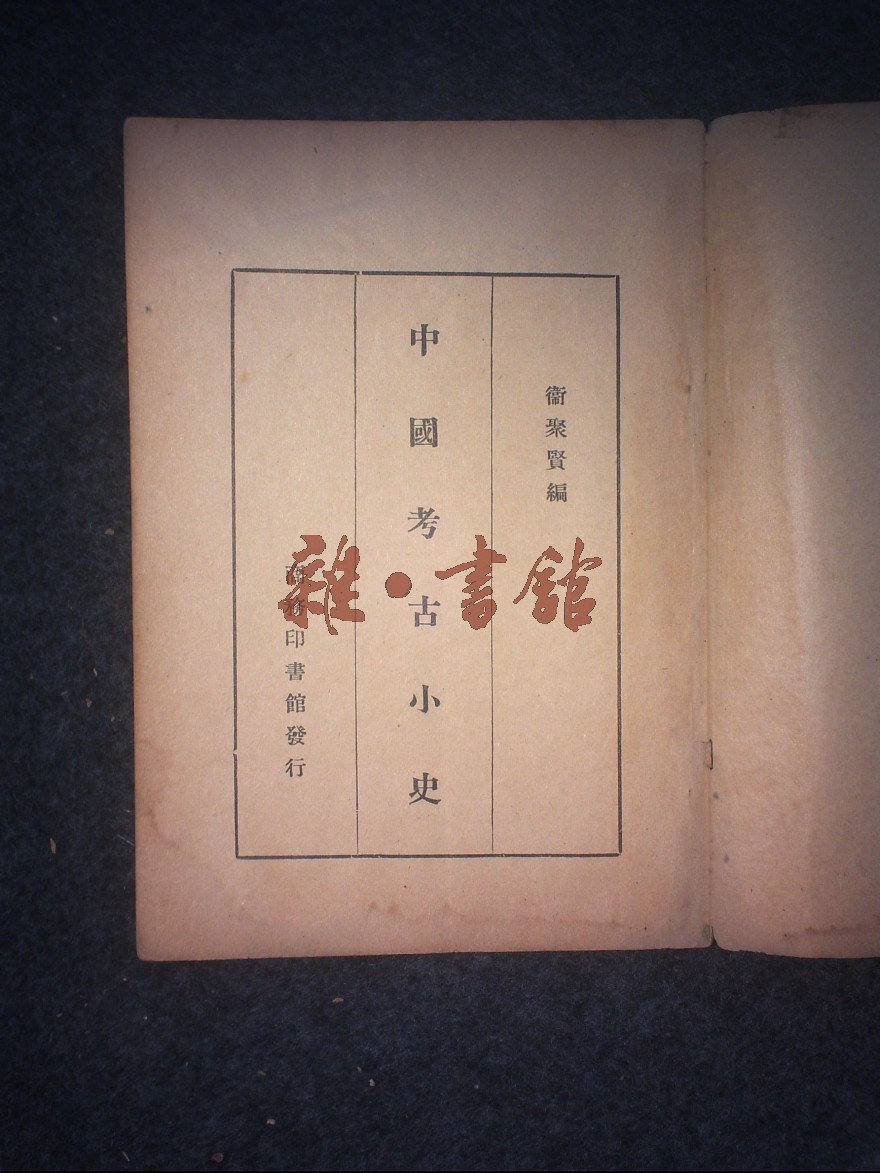 衞聚賢編
中國考古小史
商務印書館發行
雜·書館